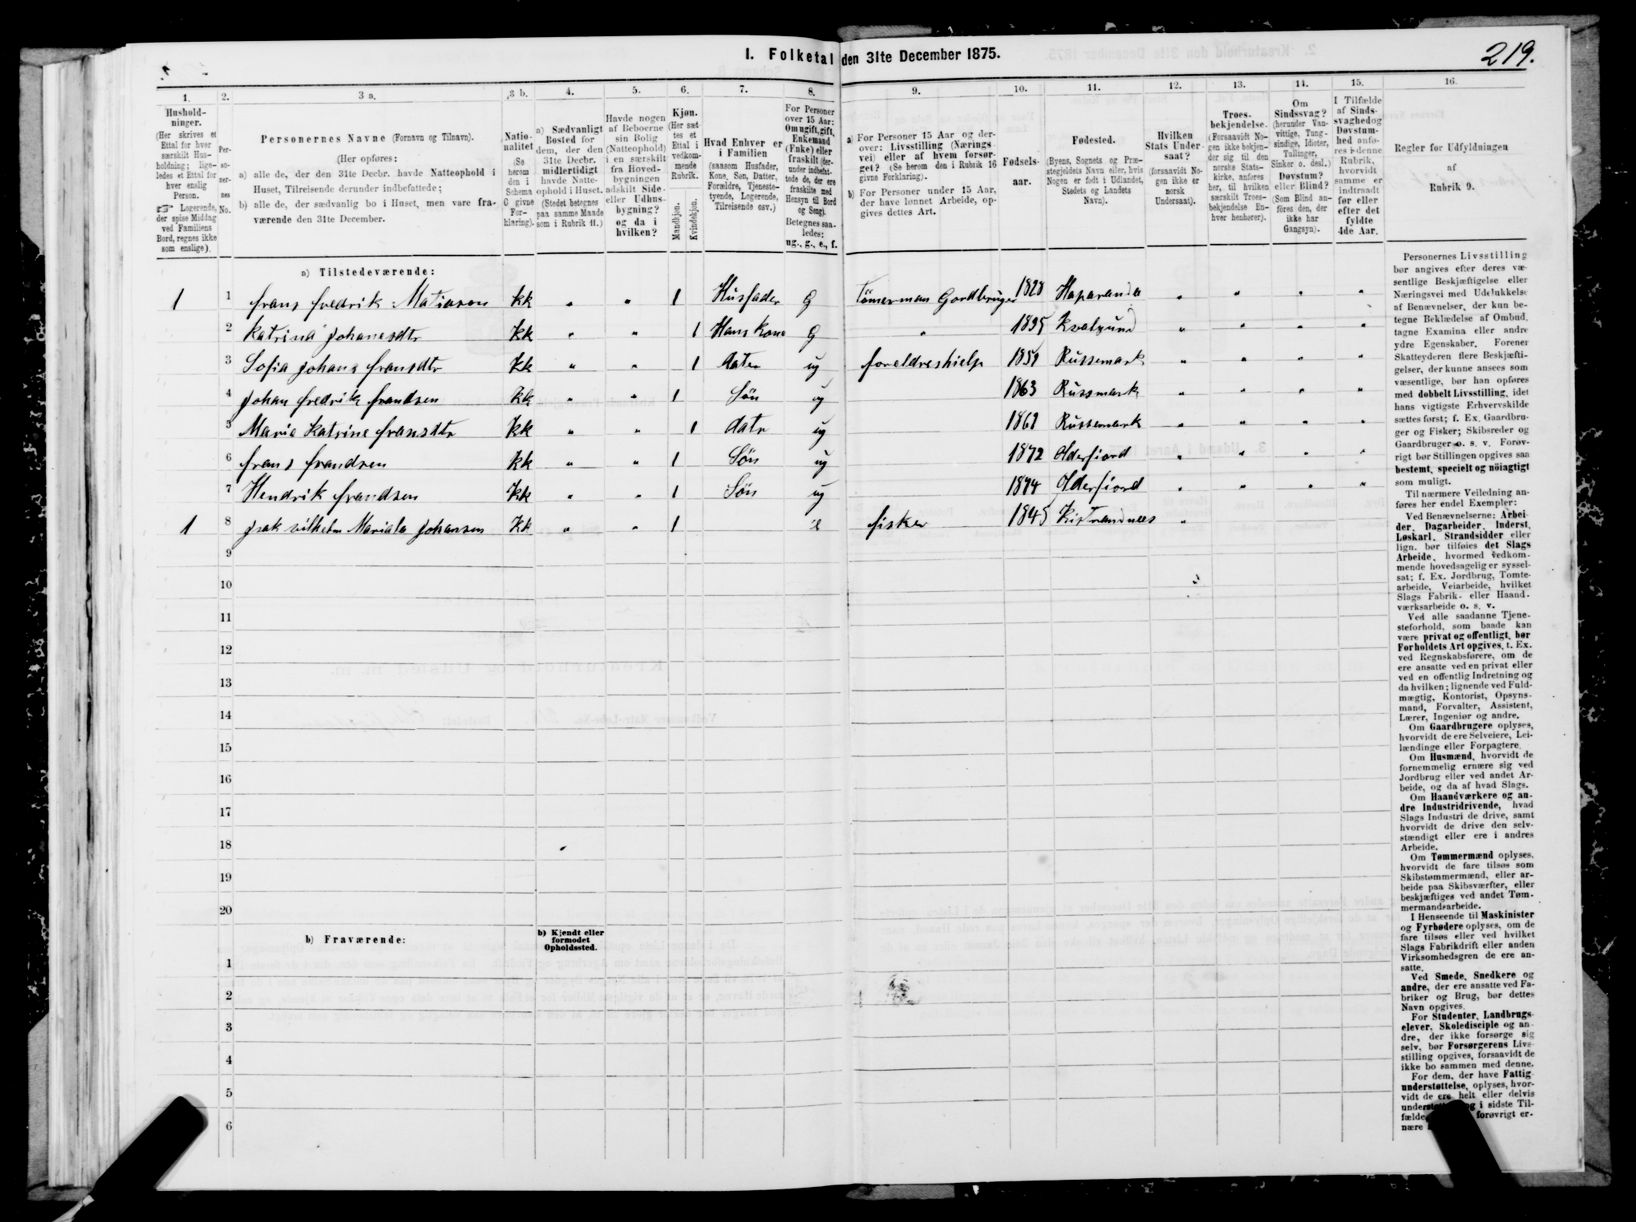 219.
I. Folketal den 31te December 1875.
1. 2. 3 a. 3 b. 4. 5. 6. 7. 8. 9. 10. 11. 12. 13. 14. 15. 16.
Hushold-
ninger.
(Her skrives et
Ettal for hver
særskilt Hus-
holdning; lige-
ledes et Ettal for
hver enslig
Person.
☞ Logerende,
der spise Middag
ved Familiens
Bord, regnes ikke
som enslige).
Per-
so-
ner-
nes
No.
Personernes Navne (Fornavn og Tilnavn).
(Her opføres:
a) alle de, der den 31te Decbr. havde Natteophold i
Huset, Tilreisende derunder indbefattede;
b) alle de, der sædvanlig bo i Huset, men vare fra-
værende den 31te December.
Natio-
nalitet
(Se
herom
den i
Schema
C givne
For-
klaring).
a) Sædvanligt
Bosted for
dem, der den
31te Decbr.
midlertidigt
havde Natte-
ophold i Huset.
(Stedet betegnes
paa samme Maade
som i Rubrik 11.)
Havde nogen
af Beboerne
sin Bolig
(Natteophold)
i en særskilt
fra Hoved-
bygningen
adskilt Side-
eller Udhus-
bygning?
og da i
hvilken?
Kjøn.
(Her sæt-
tes et
Ettal i
vedkom-
mende
Rubrik.
Mandkjøn.
Kvindekjøn.
Hvad Enhver er
i Familien
(saasom Husfader,
Kone, Søn, Datter,
Forældre, Tjeneste-
tyende, Logerende,
Tilreisende osv.)
For Personer
over 15 Aar:
Om ugift, gift,
Enkemand
(Enke) eller
fraskilt (her-
under indbefat-
tede de, der ere
fraskilte med
Hensyn til Bord
og Seng).
Betegnes saa-
ledes:
ug., g., e., f.
a) For Personer 15 Aar og der-
over: Livsstilling (Nærings-
vei) eller af hvem forsør-
get? (Se herom den i Rubrik 16
givne Forklaring).
b) For Personer under 15 Aar,
der have lønnet Arbeide, op-
gives dettes Art.
Fødsels-
aar.
Fødested.
(Byens, Sognets og Præ-
stegjeldets Navn eller, hvis
Nogen er født i Udlandet,
Stedets og Landets
Navn).
Hvilken
Stats Under-
saat?
(forsaavidt No-
gen ikke er
norsk
Undersaat).
Troes-
bekjendelse.
(Forsaavidt No-
gen ikke bekjen-
der sig til den
norske Stats-
kirke, anføres
her, til hvilken
særskilt Troes-
bekjendelse En-
hver henhører).
Om
Sindssvag?
(herunder Van-
vittige, Tung-
sindige, Idioter,
Tullinger,
Sinker o. desl.)
Døvstum?
eller Blind?
(Som Blind an-
føres den, der
ikke har
Gangsyn).
I Tilfælde
af Sinds-
svaghed og
Døvstum-
hed anfø-
res i denne
Rubrik,
hvorvidt
samme er
indtraadt
før eller
efter det
fyldte
4de Aar.
Regler for Udfyldningen
af
Rubrik 9.
a) Tilstedeværende:
1 1 frans fredrik Matiason kk " " 1 Husfader g Tömerman Gardbruger 1828 Haparanda " " " "
2 Katrina Johanesdtr kk " " 1 Hans kone g " 1835 Kvalsund " " " "
3 Sofia Johana fransdtr kk " " 1 dater ug foreldreshielp 1859 Russemark " " " "
4 Johan fredrik frandsen kk " " 1 Sön ug 1863 Russmark " " " "
5 Maria Katrine fransdtr kk " " 1 datr ug 1868 Russemark " " " "
6 frans frandsen kk " " 1 Sön ug 1872 Olderfiord " " " "
7 Hendrik frandsen kk " " 1 Sön ug 1874 Olderfiord " " " "
1 8 Jsak vilhelm Johansen kk " " 1 fisker 1845 Kistrandnes "
9
10
11
12
13
14
15
16
17
18
19
20
b) Fraværende:
b) Kjendt eller
formodet
Opholdssted.
1
2
3
4
5
6
Personernes Livsstilling
bør angives efter deres væ-
sentlige Beskjæftigelse eller
Næringsvei med Udelukkelse
af Benævnelser, der kun be-
tegne Beklædelse af Ombud,
tagne Examina eller andre
ydre Egenskaber. Forener
Skatteyderen flere Beskjæfti-
gelser, der kunne ansees som
væsentlige, bør han opføres
med dobbelt Livsstilling, idet
hans vigtigste Erhvervskilde
sættes først; f. Ex. Gaardbru-
ger og Fisker; Skibsreder og
Gaardbruger o. s. v. Forøv-
rigt bør Stillingen opgives saa
bestemt, specielt og nöiagtigt
som muligt.
Til nærmere Veiledning an-
føres her endel Exempler:
Ved Benævnelserne: Arbei-
der, Dagarbeider, Inderst,
Løskarl, Strandsidder eller
lign. bør tilføies det Slags
Arbeide, hvormed vedkom-
mende hovedsagelig er syssel-
sat; f. Ex. Jordbrug, Tomte-
arbeide, Veiarbeide, hvilket
Slags Fabrik- eller Haand-
værksarbeide o. s. v.
Ved alle saadanne Tjene-
steforhold, som baade kan
være privat og offentligt, bør
Forholdets Art opgives, f. Ex.
ved Regnskabsførere, om de
ere ansatte ved en privat eller
ved en offentlig Indretning og
da hvilken; lignende ved Fuld-
mægtig, Kontorist, Opsyns-
mand, Forvalter, Assistent,
Lærer, Ingeniør og andre.
Om Gaardbrugere oplyses,
hvorvidt de ere Selveiere, Lei-
lændinge eller Forpagtere.
Om Husmænd, hvorvidt de
fornemmelig ernære sig ved
Jordbrug eller ved andet Ar-
beide, og da af hvad Slags.
Om Haandværkere og an-
dre Industridrivende, hvad
Slags Industri de drive, samt
hvorvidt de drive den selv-
stændigt eller ere i andres
Arbeide.
Om Tømmermænd oplyses,
hvorvidt de fare tilsøs som
Skibstømmermænd, eller ar-
beide paa Skibsværfter, eller
beskjæftiges ved andet Tøm-
mermandsarbeide.
I Henseende til Maskinister
og Fyrbødere oplyses, om de
fare tilsøs eller ved hvilket
Slags Fabrikdrift eller anden
Virksomhedsgren de ere an-
satte.
Ved Smede, Snedkere og
andre, der ere ansatte ved Fa-
briker og Brug, bør dettes
Navn opgives.
For Studenter, Landbrugs-
elever, Skoledisciple og an-
dre, der ikke forsørge sig
selv, bør Forsørgerens Livs-
stilling opgives, forsaavidt de
ikke bo sammen med denne.
For dem, der have Fattig
understøttelse, oplyses, hvor-
vidt de ere helt eller delvis
i sidste Til-
forøvrigt er-
nære